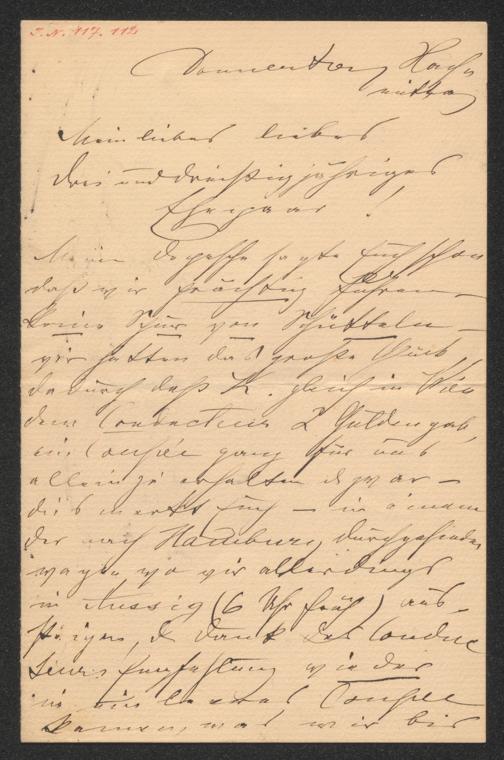 J.N. 117.112
Donnerstag Nach
mittag
Mein liebes liebes
dreiunddreißigjähriges
Ehepaar!
Meine Depesche sagte Euch schon
daß wir prächtig fuhren –
keine Spur von Schütteln –
wir hatten das große Glück,
dadurch daß K. gleich in Wien
dem Conducteur 2 Gulden gab,
ein Coupée ganz für uns
allein zu erhalten & zwar –
dies merkt Euch – in einem
der nach Hamburg durchgehenden
wagen, wo wir allerdings
in Aussig (6 Uhr früh) aus-
steigen, & Dank des Conduc
teurs Empfehlung wieder
in ein leeres Coupée
kamen, was wir bis